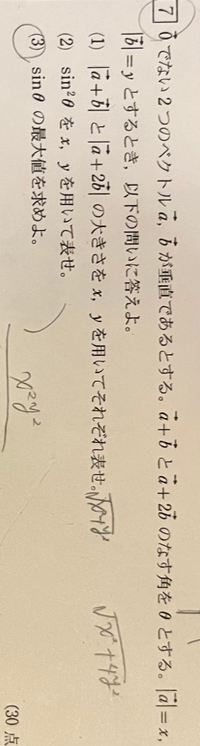 7 $\vec{0}$ でない2つのベクトル $\vec{a}$, $\vec{b}$ が垂直であるとする。$\vec{a}+\vec{b}$ と $\vec{a}+2\vec{b}$ のなす角を θ とする。$|\vec{a}|=x$,
$|\vec{b}|=y$ とするとき, 以下の問いに答えよ。
(1) $|\vec{a}+\vec{b}|$ と $|\vec{a}+2\vec{b}|$ の大きさを x, y を用いてそれぞれ表せ。
$\sqrt{x^2+4y^2}$
(2) $\sin^2\theta$ を x, y を用いて表せ。
(3) $\sin\theta$ の最大値を求めよ。
$x^2y^2$
(30 点